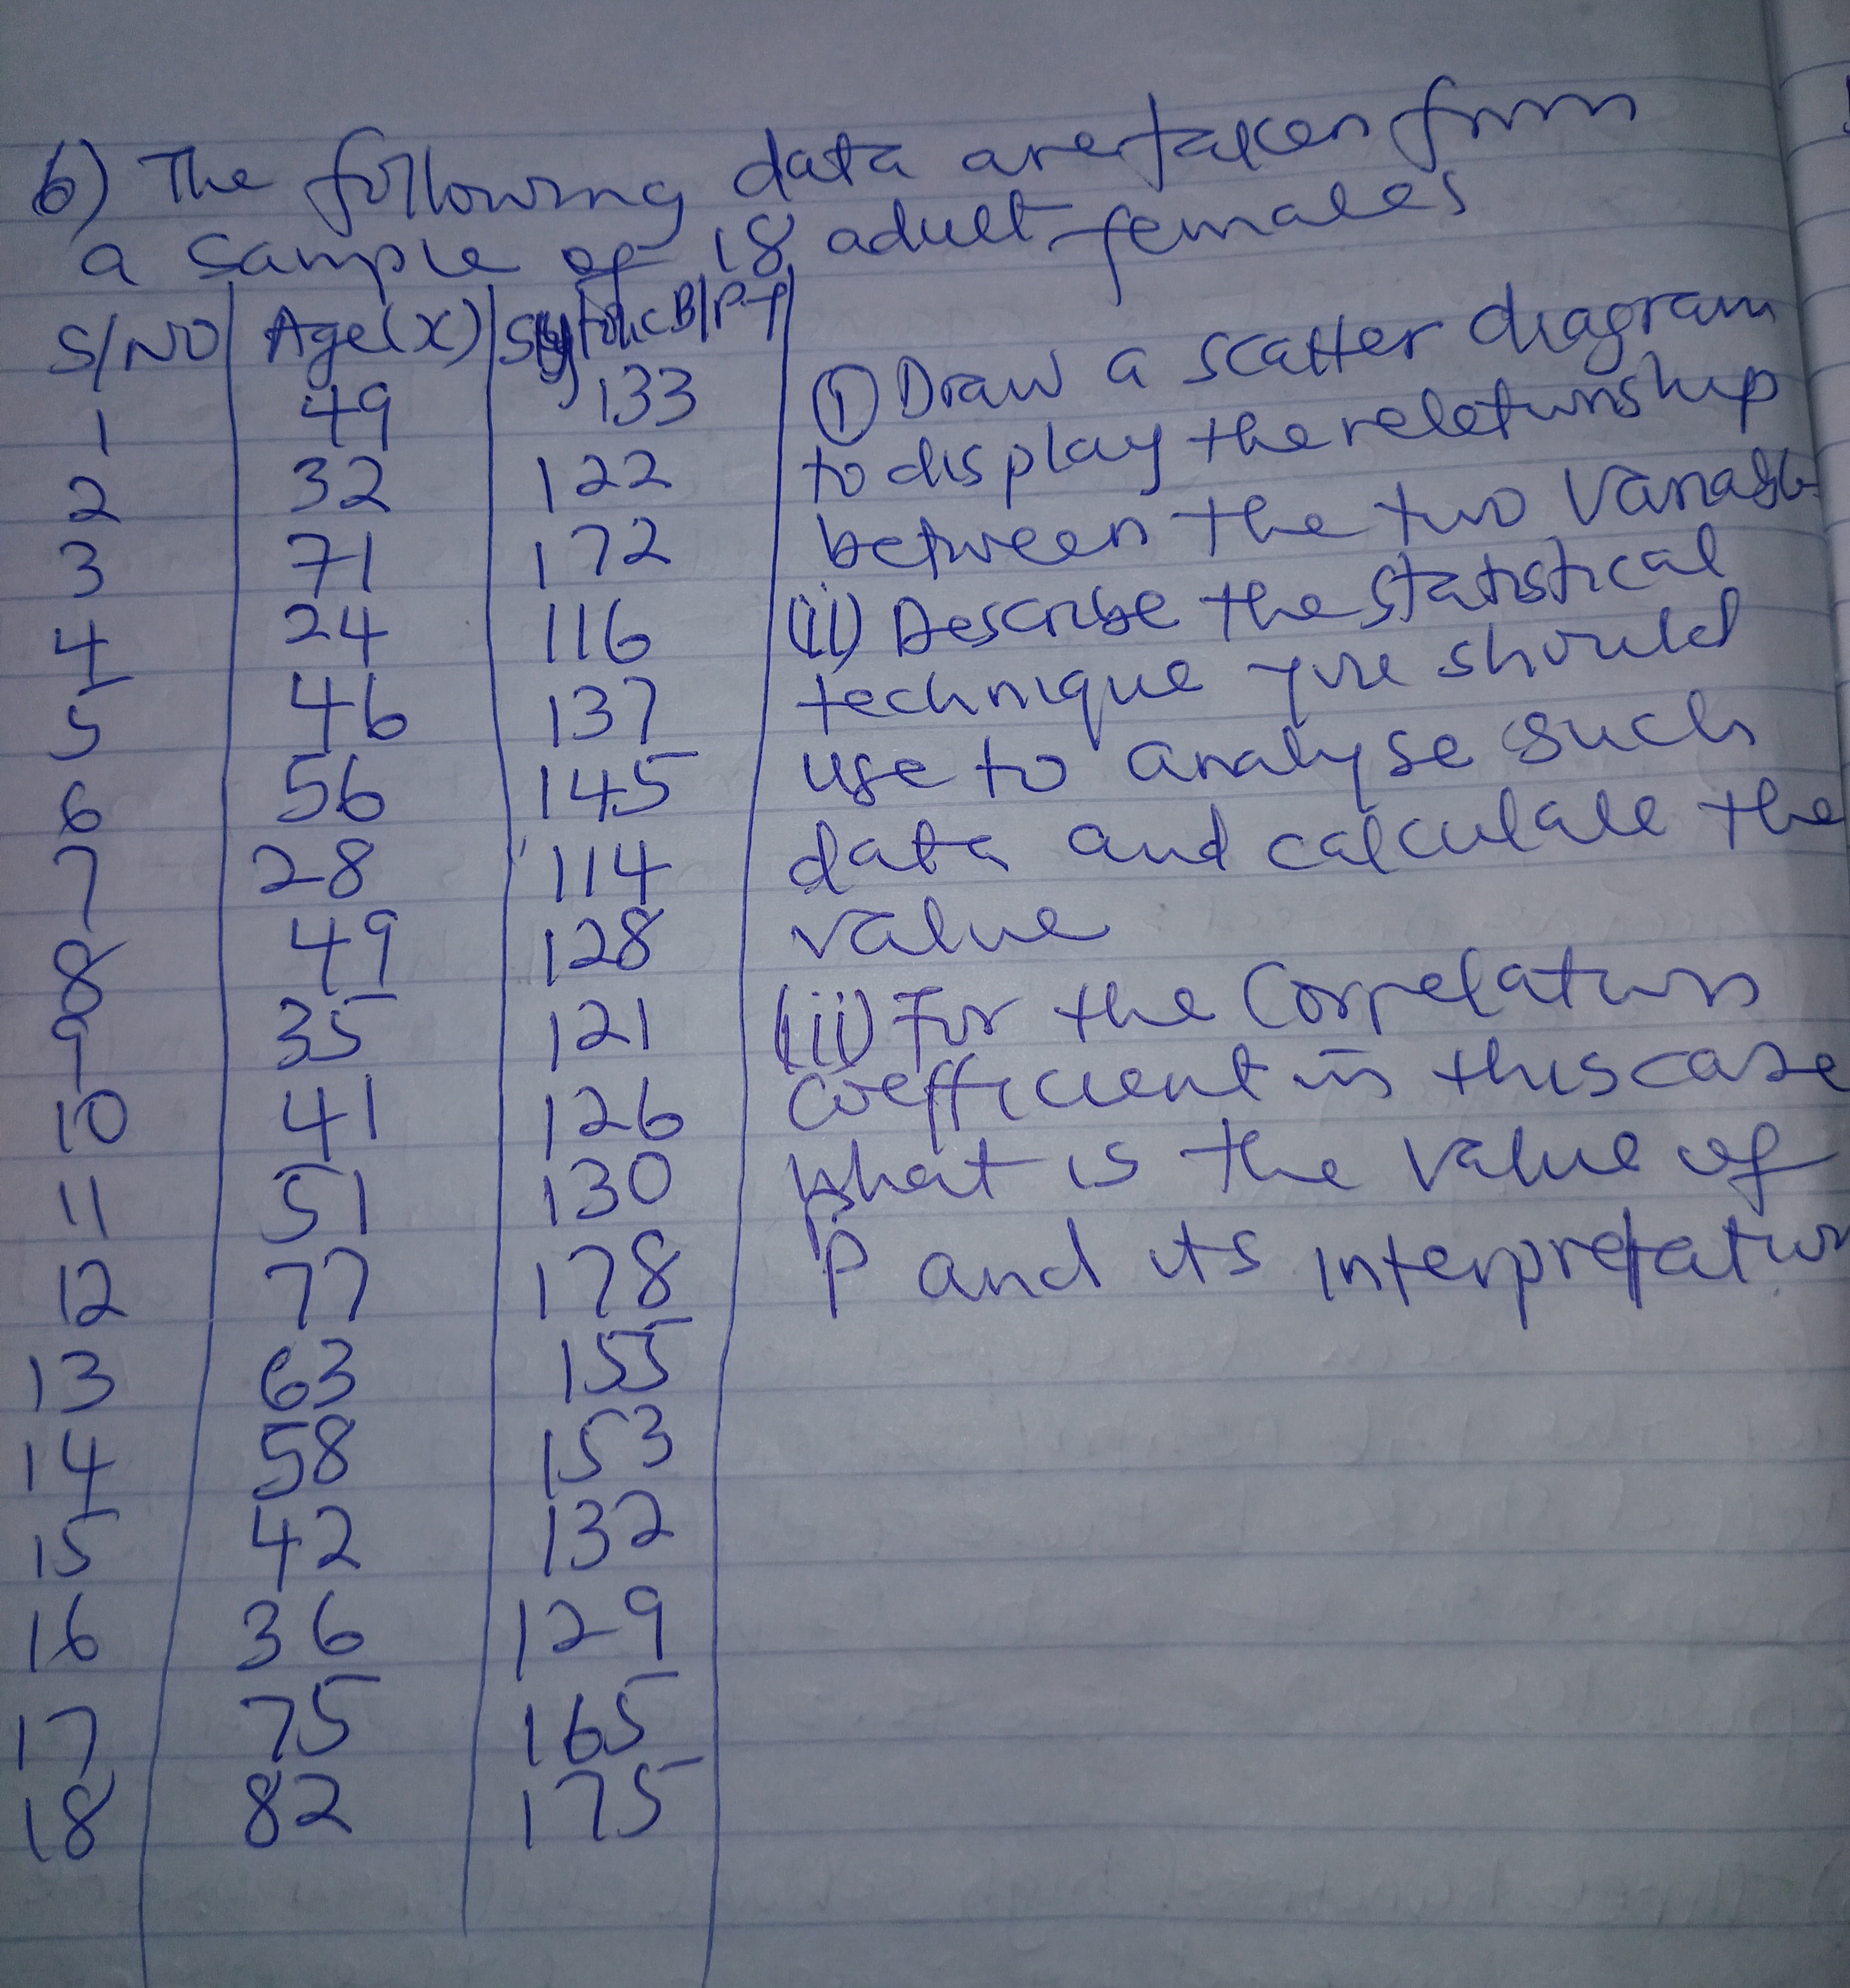 6) The following data are taken from
a sample of 18 adult females
S/NO Age(x) Systolic B/P
1 49 133
2 32 122
3 71 172
4 24 116
5 46 137
6 56 145
7 28 114
8 49 128
9 35 121
10 41 126
11 51 130
12 77 178
13 63 155
14 58 153
15 42 132
16 36 129
17 75 165
18 82 175
(i) Draw a scatter diagram
to display the relationship
between the two variable
(ii) Describe the statistical
technique you should
use to analyse such
data and calculate the
value
(iii) For the Correlation
coefficient in this case
what is the value of
P and its interpretation